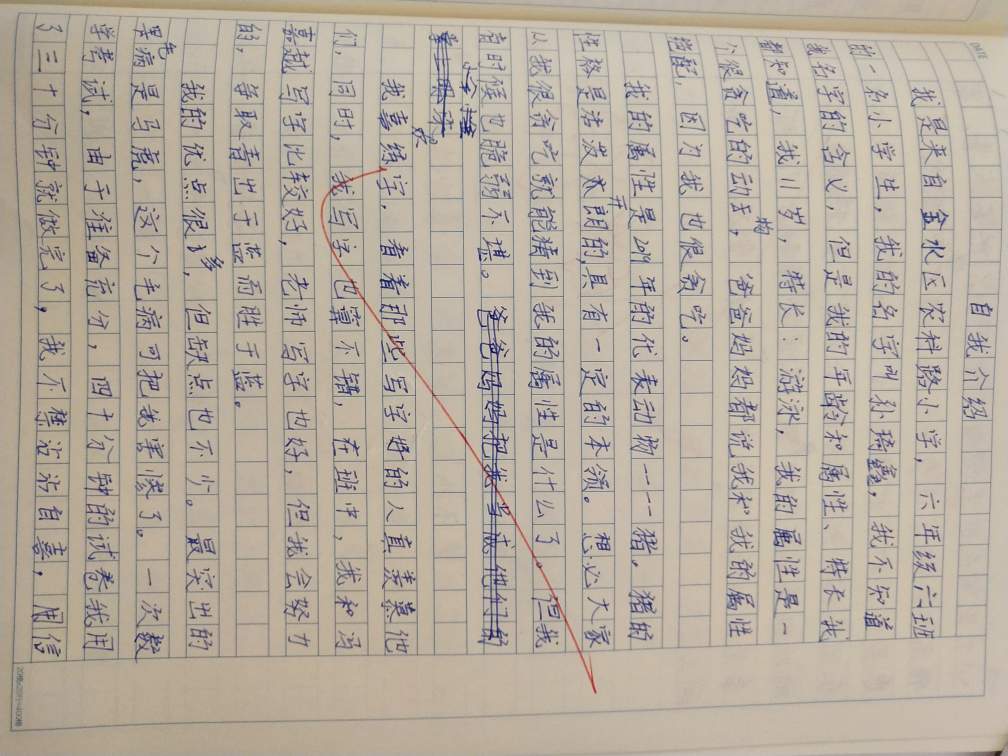 自我介绍
我是来自金水区农科路小学，六年级六班
的一名小学生，我的名字叫孙琦鑫，我不知道
我名字的含义，但是我的年龄和属性、特长我
都知道，我11岁，特长：游泳，我的属性是一
个很贪吃的动物，爸爸妈妈都说我和我的属性
绝配，因为我也很贪吃。
我的属性是2019年的代表动物一一猪。猪的
性格是活泼开朗的具有一定的本领。想必大家
从我很贪吃就能猜到我的属性是什么了。但我
有时候也脆弱不堪。爸爸妈妈把我当成他们的
我喜欢练字，看着那些写字好的人真羡慕他
们，同时，我写字也算不错，在班中，我和冯
嘉越写字比较好，老师写字也好，但我会努力
的，争取青出于蓝而胜于蓝。
我的优点很多，但缺点也不少。最突出的
毛病是马虎，这个毛病可把我害惨了。一次数
学考试，由于准备充分，四十分钟的试卷我用
了三十分钟就做完了，我不禁沾沾自喜，用信